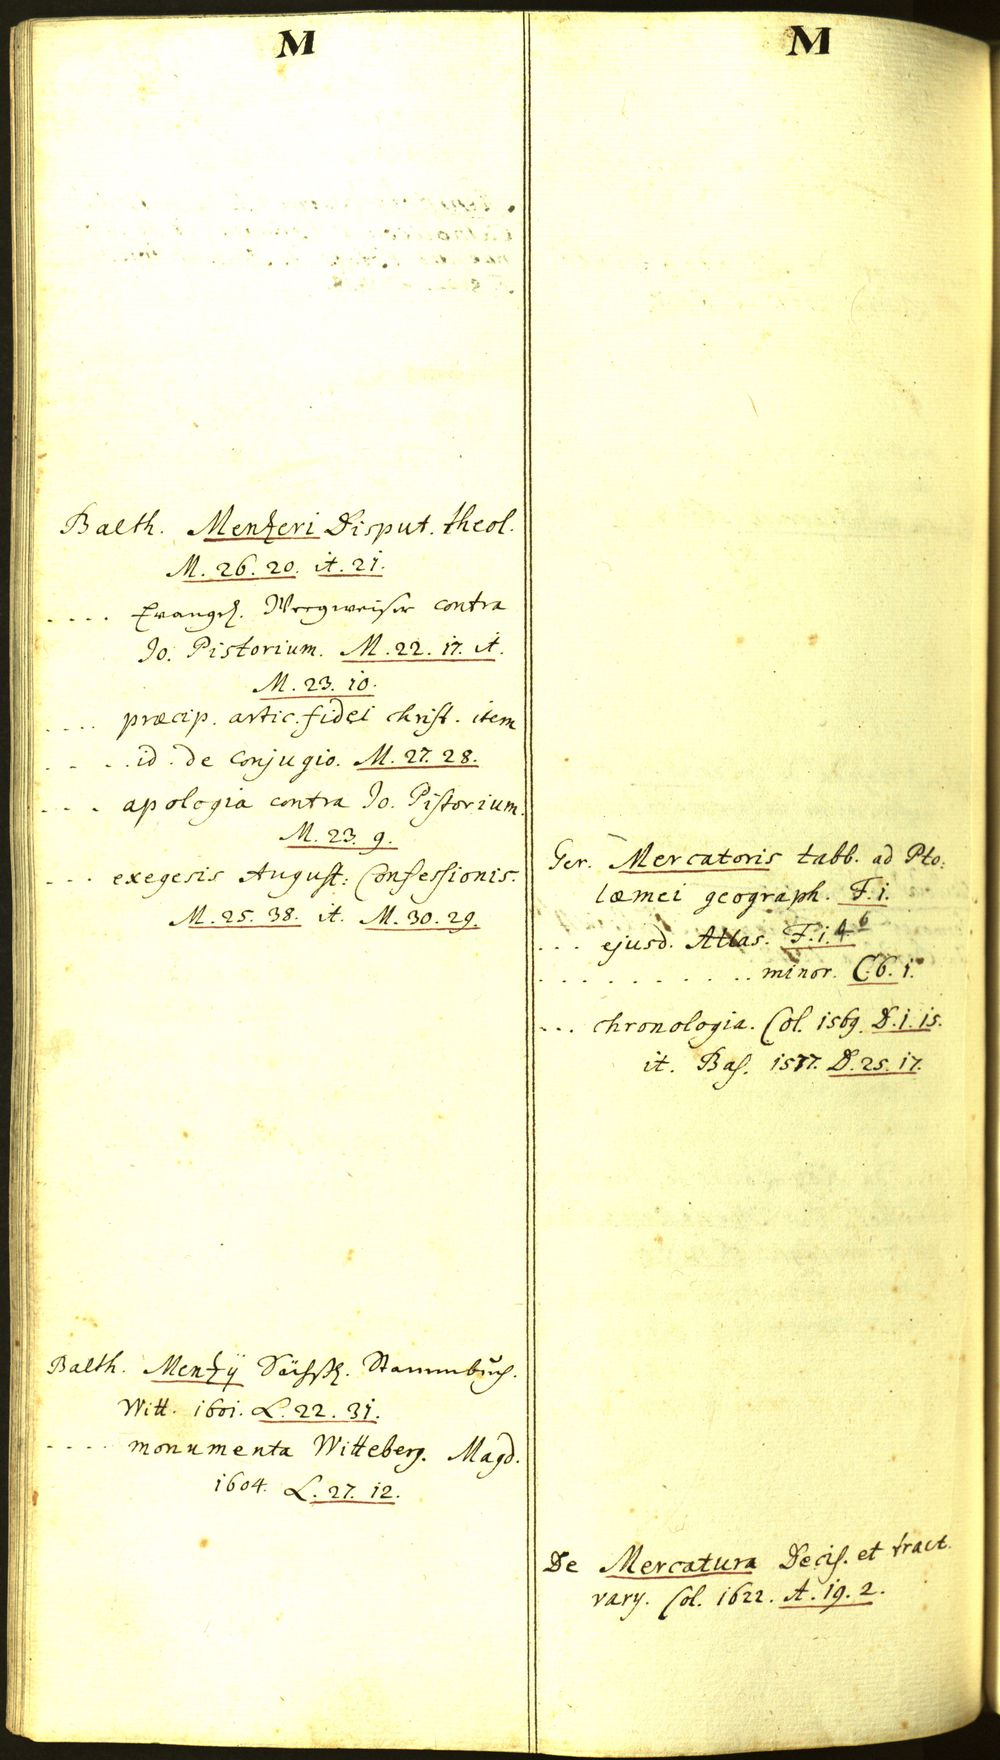 M
Balth. Menzeri Disput. theol.
M. 26. 20. it. 21.
.... Evangel. Wegweiser contra
Jo. Pistorium. M. 22. 17. it.
M. 23. 10.
.... præcip. artic. fidei christ. item
.... id. de conjugio. M. 27. 28.
... apologia contra Jo. Pistorium.
M. 23. 9.
... exegesis August: Confessionis.
M. 25. 38. it. M. 30. 29.
Balth. Menzij Sächß. Stammbuch.
Witt. 1601. L. 22. 31.
.... monumenta Witteberg. Magd.
1604. L. 27. 12.
M
Ger. Mercatoris tabb. ad Pto:
læmei geograph. F. 1.
... ejusd. Atlas. F. 1. 6
.......... minor. C. 6. 1.
... chronologia. Col. 1569. D. 1. 15.
it. Bas. 1577. D. 25. 17.
De Mercatura Decis. et tract.
varij. Col. 1622. A. 19. 2.